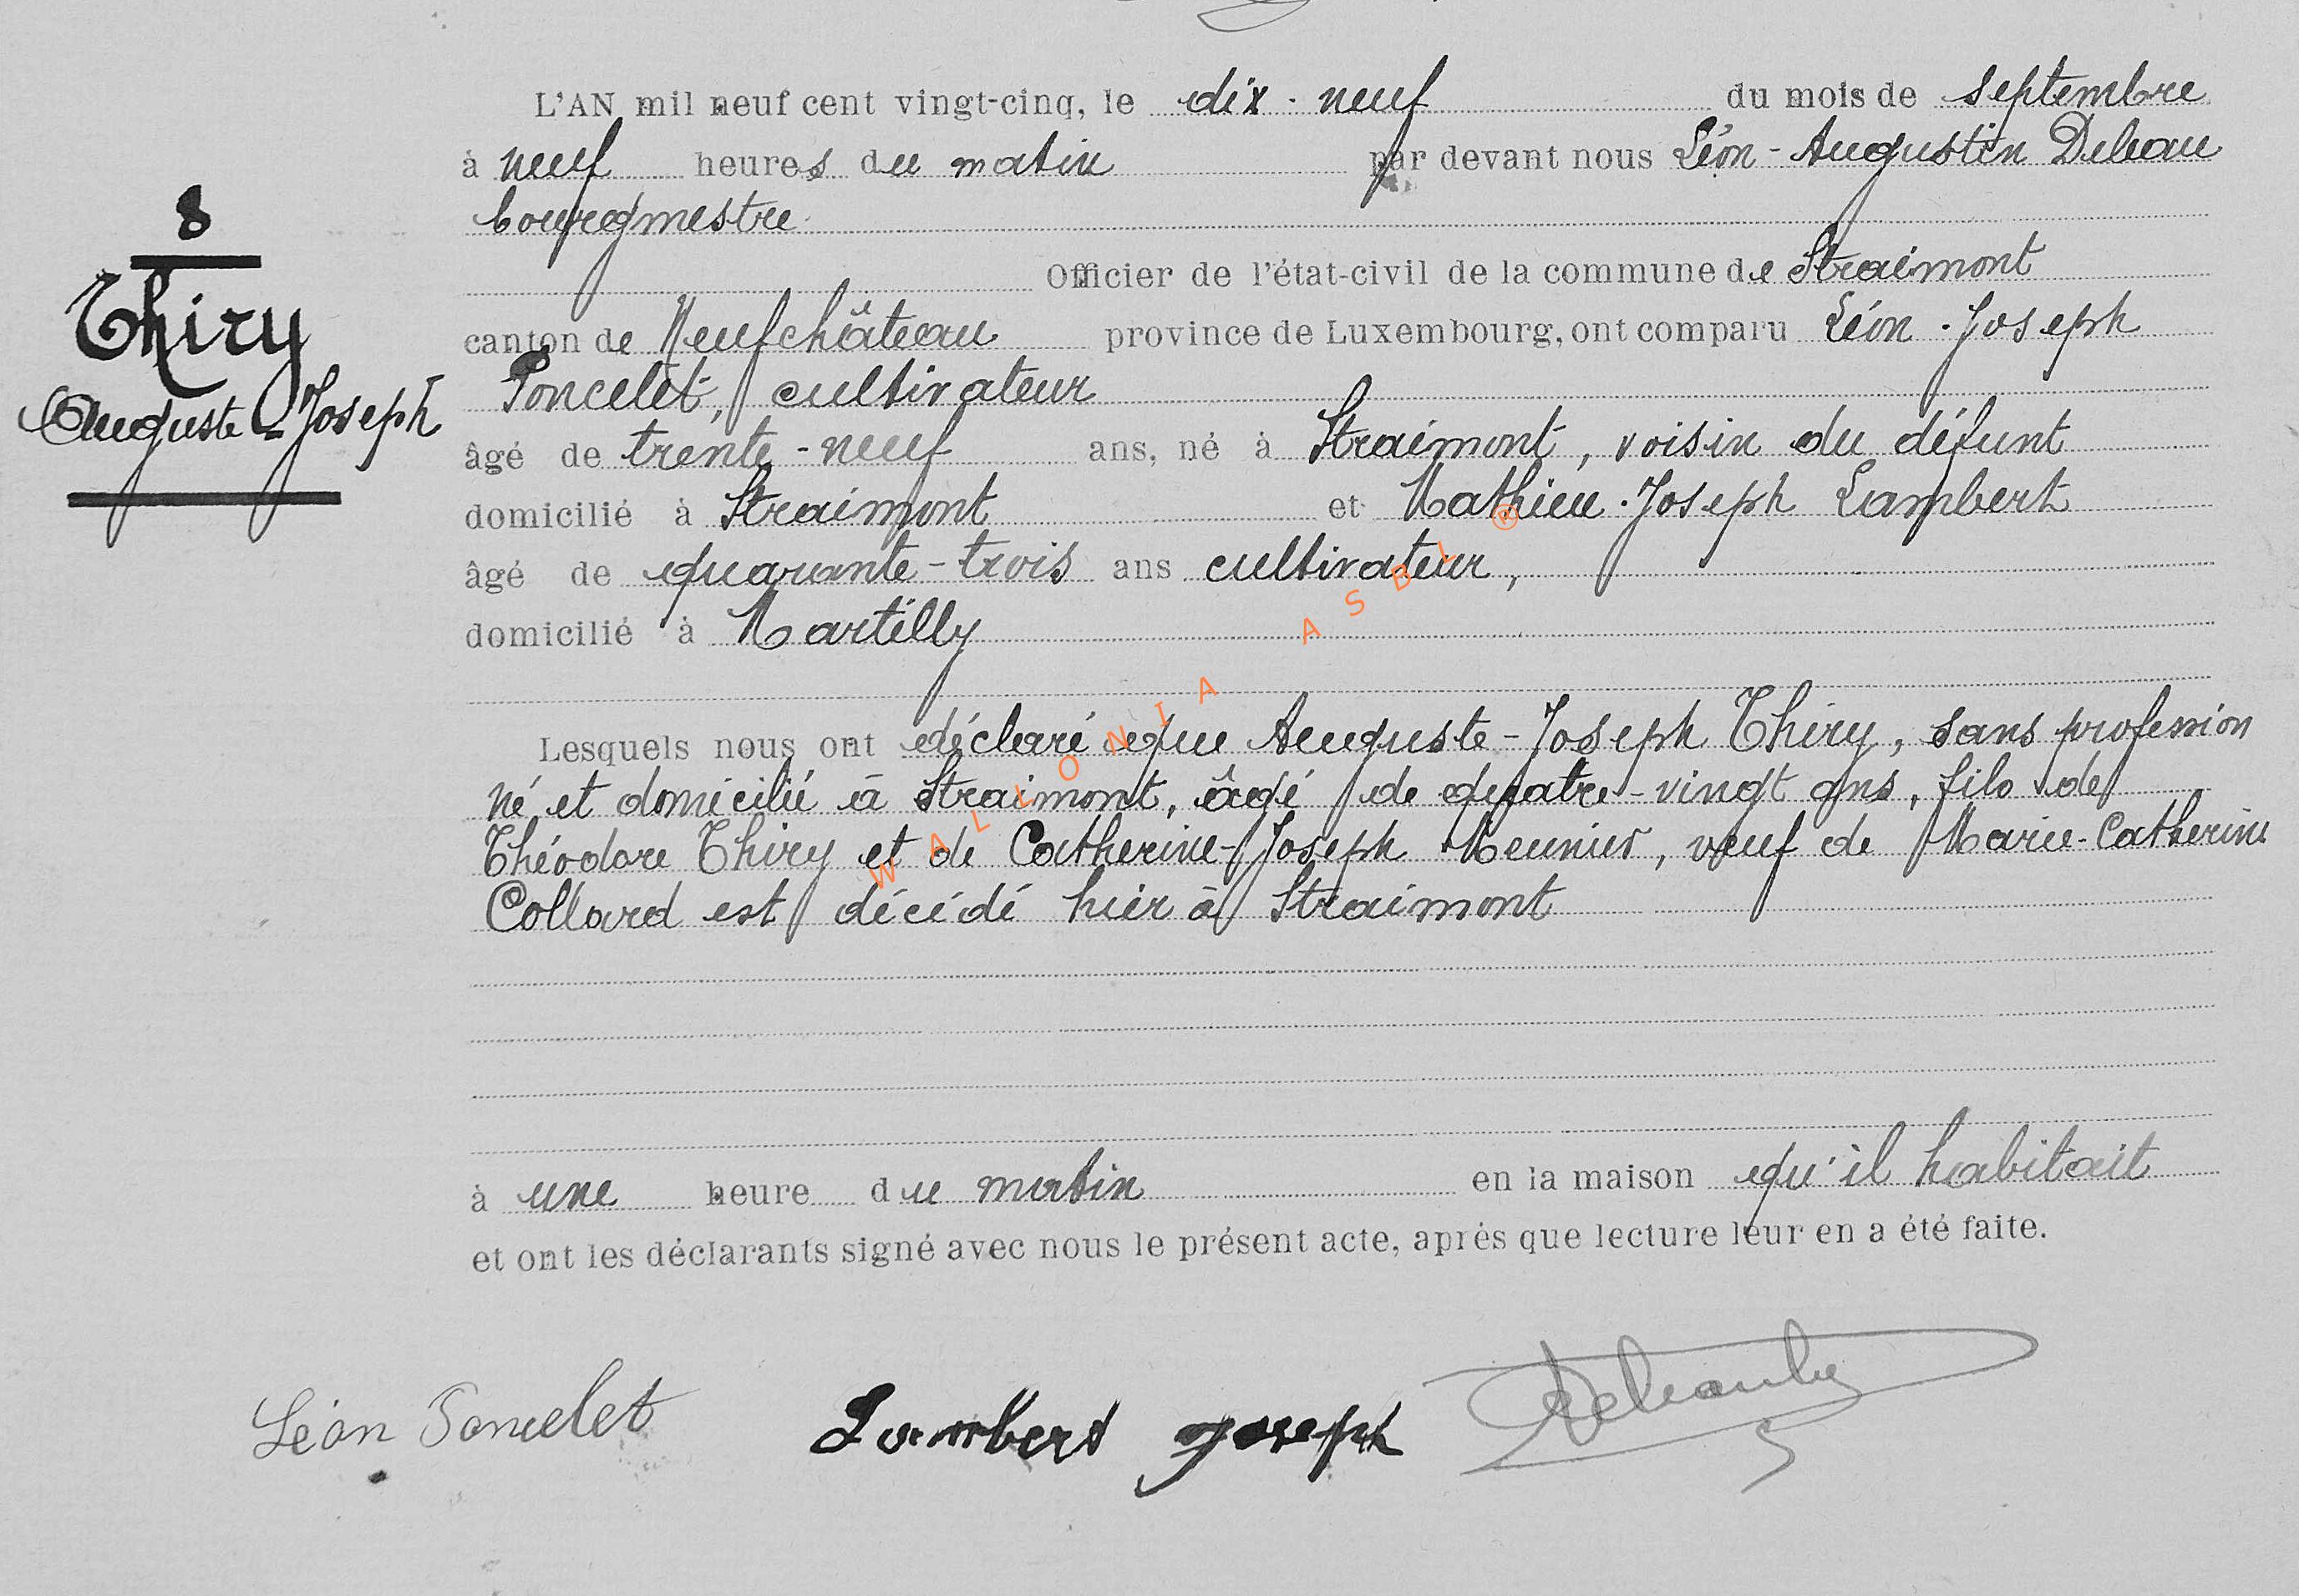 8
Thiry
Auguste-Joseph
L'AN mil neuf cent vingt-cinq, le dix-neuf du mois de septembre
à neuf heures du matin par devant nous Léon-Augustin Deleau
bourgmestre
Officier de l'état-civil de la commune de Straimont
canton de Neufchâteau province de Luxembourg, ont comparu Léon-Joseph
Poncelet, cultivateur
âgé de trente-neuf ans, né à Straimont, voisin du défunt
domicilié à Straimont et Mathieu-Joseph Lambert
âgé de quarante-trois ans cultivateur,
domicilié à Martilly
Lesquels nous ont déclaré que Auguste-Joseph Thiry, sans profession
né et domicilié à Straimont, âgé de quatre-vingt ans, fils de
Théodore Thiry et de Catherine-Joseph Meunier, veuf de Marie-Catherine
Collard est décédé hier à Straimont
à une heure du matin en la maison qu'il habitait
et ont les déclarants signé avec nous le présent acte, après que lecture leur en a été faite.
Léon Poncelet Lambert Joseph
WALLONIA ASBL ®